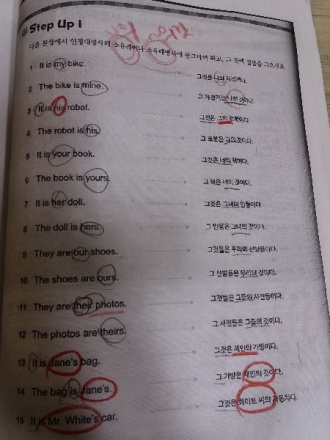 Step Up 1
다음 문장에서 인칭대명사의 소유격이나 소유대명사에 동그라미 하고, 그 뜻에 밑줄을 그으세요.
1 It is my bike. 그것은 나의 자전거다.
2 The bike is mine. 그 자전거는 나의 것이다.
3 It is his robot. 그것은 그의 로봇이다.
4 The robot is his. 그 로봇은 그의 것이다.
5 It is your book. 그것은 너의 책이다.
6 The book is yours. 그 책은 너의 것이다.
7 It is her doll. 그것은 그녀의 인형이다.
8 The doll is hers. 그 인형은 그녀의 것이다.
9 They are our shoes. 그것들은 우리의 신발들이다.
10 The shoes are ours. 그 신발들은 우리의 것이다.
11 They are their photos. 그것들은 그들의 사진들이다.
12 The photos are theirs. 그 사진들은 그들의 것이다.
13 It is Jane's bag. 그것은 제인의 가방이다.
14 The bag is Jane's. 그 가방은 제인의 것이다.
15 It is Mr. White's car. 그것은 화이트 씨의 자동차다.